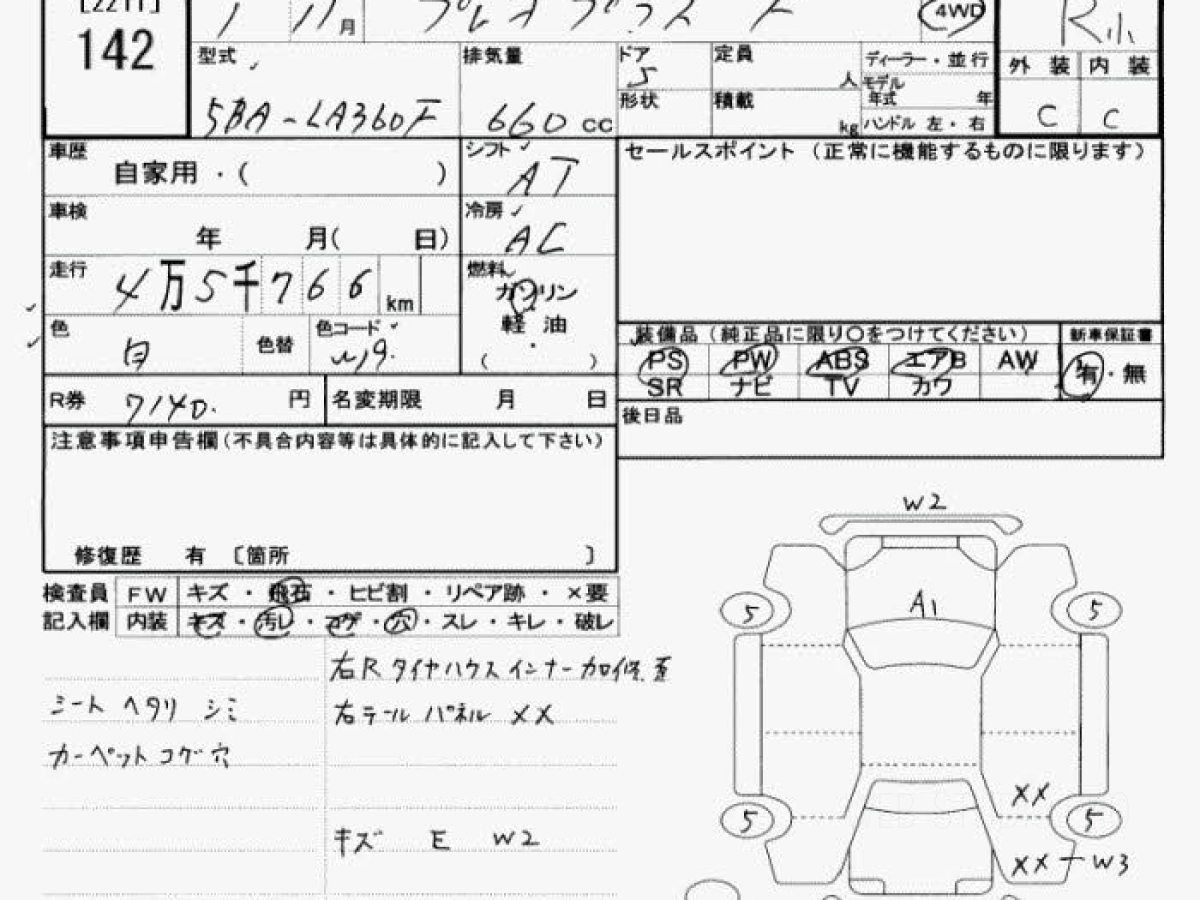 [2211]
142
1 11月 プレオプラス F 4WD R小
型式 排気量 ドア 定員 ディーラー・並行 外装 内装
5 人 モデル年式 年
形状 積載
5BA-LA360F 660 cc kg ハンドル 左・右 C C
車歴 シフト セールスポイント (正常に機能するものに限ります)
自家用・( ) AT
車検 冷房
年 月( 日) AC
走行 燃料
4万5千766 km ガソリン
色 色替 色コード 軽油 装備品(純正品に限り○をつけてください) 新車保証書
白 W19. ( ・ ) PS PW ABS エアB AW 有・無
SR ナビ TV カワ
R券 7140. 円 名変期限 月 日 後日品
注意事項申告欄(不具合内容等は具体的に記入して下さい)
修復歴 有 〔箇所 〕
W2
検査員 FW キズ・飛石・ヒビ割・リペア跡・×要
記入欄 内装 キズ・汚レ・コゲ・穴・スレ・キレ・破レ
5 A1 5
右Rタイヤハウスインナー加修歪
シートヘタリ シミ 右テールパネル XX
カーペットコゲ穴
XX
5 5
キズ E W2
XX-W3